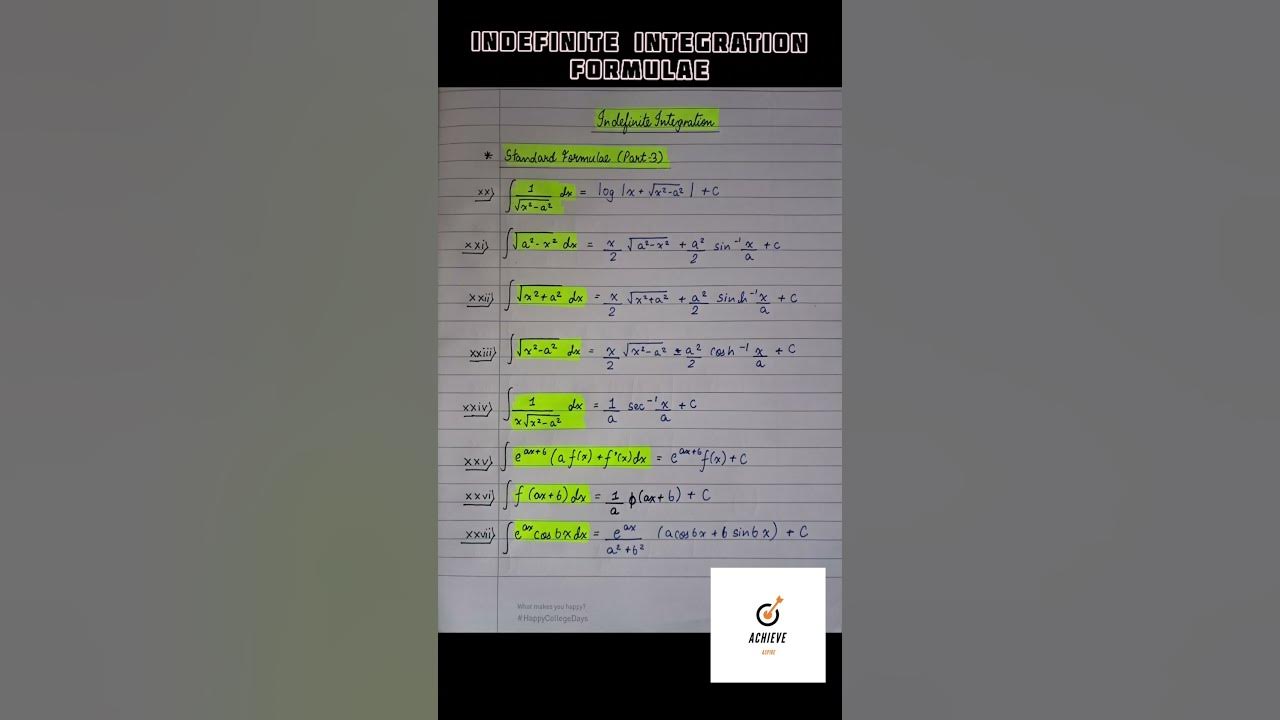 INDEFINITE INTEGRATION
FORMULAE
Indefinite Integration
* Standard Formulae (Part-3)
xx) ∫ 1/√(x²-a²) dx = log |x + √(x²-a²)| + C
xxi) ∫ √(a²-x²) dx = x/2 √(a²-x²) + a²/2 sin⁻¹ x/a + C
xxii) ∫ √(x²+a²) dx = x/2 √(x²+a²) + a²/2 sinh⁻¹ x/a + C
xxiii) ∫ √(x²-a²) dx = x/2 √(x²-a²) ± a²/2 cosh⁻¹ x/a + C
xxiv) ∫ 1/(x√(x²-a²)) dx = 1/a sec⁻¹ x/a + C
xxv) ∫ e^(ax+b) (a f(x) + f'(x) dx = e^(ax+b) f(x) + C
xxvi) ∫ f(ax+b) dx = 1/a ϕ(ax+b) + C
xxvii) ∫ e^(ax) cos bx dx = e^(ax)/(a²+b²) (a cos bx + b sin bx) + C
What makes you happy?
#HappyCollegeDays
ACHIEVE
ASPIRE